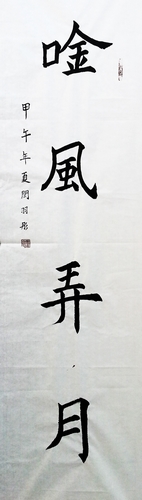 唫風弄月
甲午年夏閆羽彤